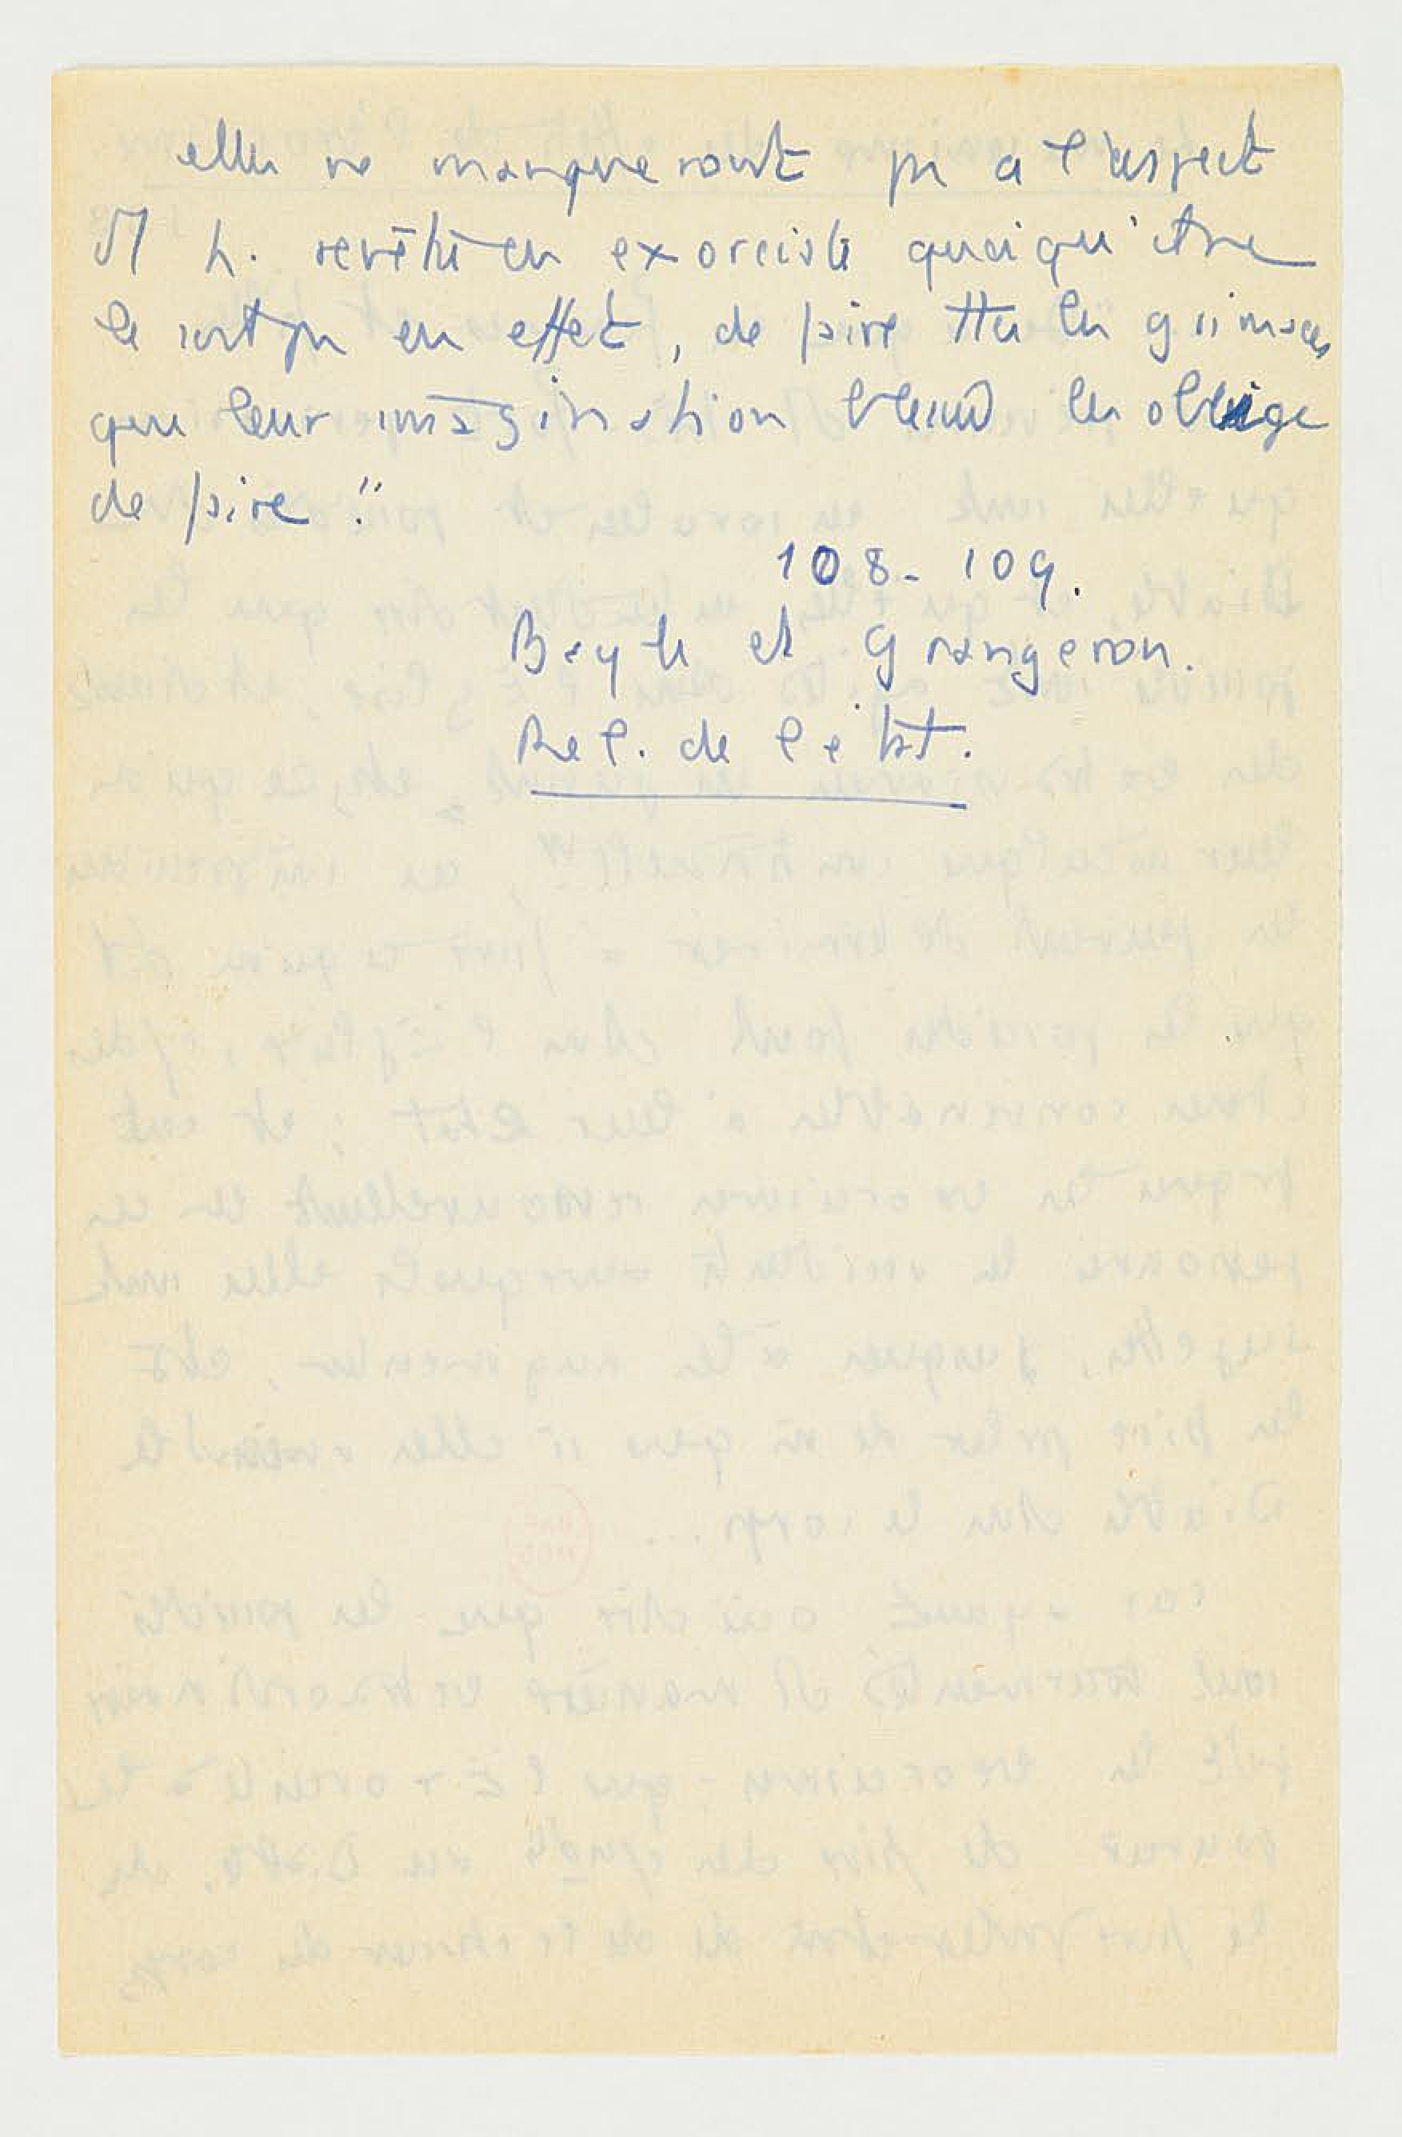 elles ne manqueront pas a l'aspect
d'1 h. revêtu en exorciste quoiqu'il ne
le soit pas en effet, de faire ttes les grimaces
que leur imagination blessée les oblige
de faire"
108-109.
Bayle et Grangeron.
Rel. de l'état.